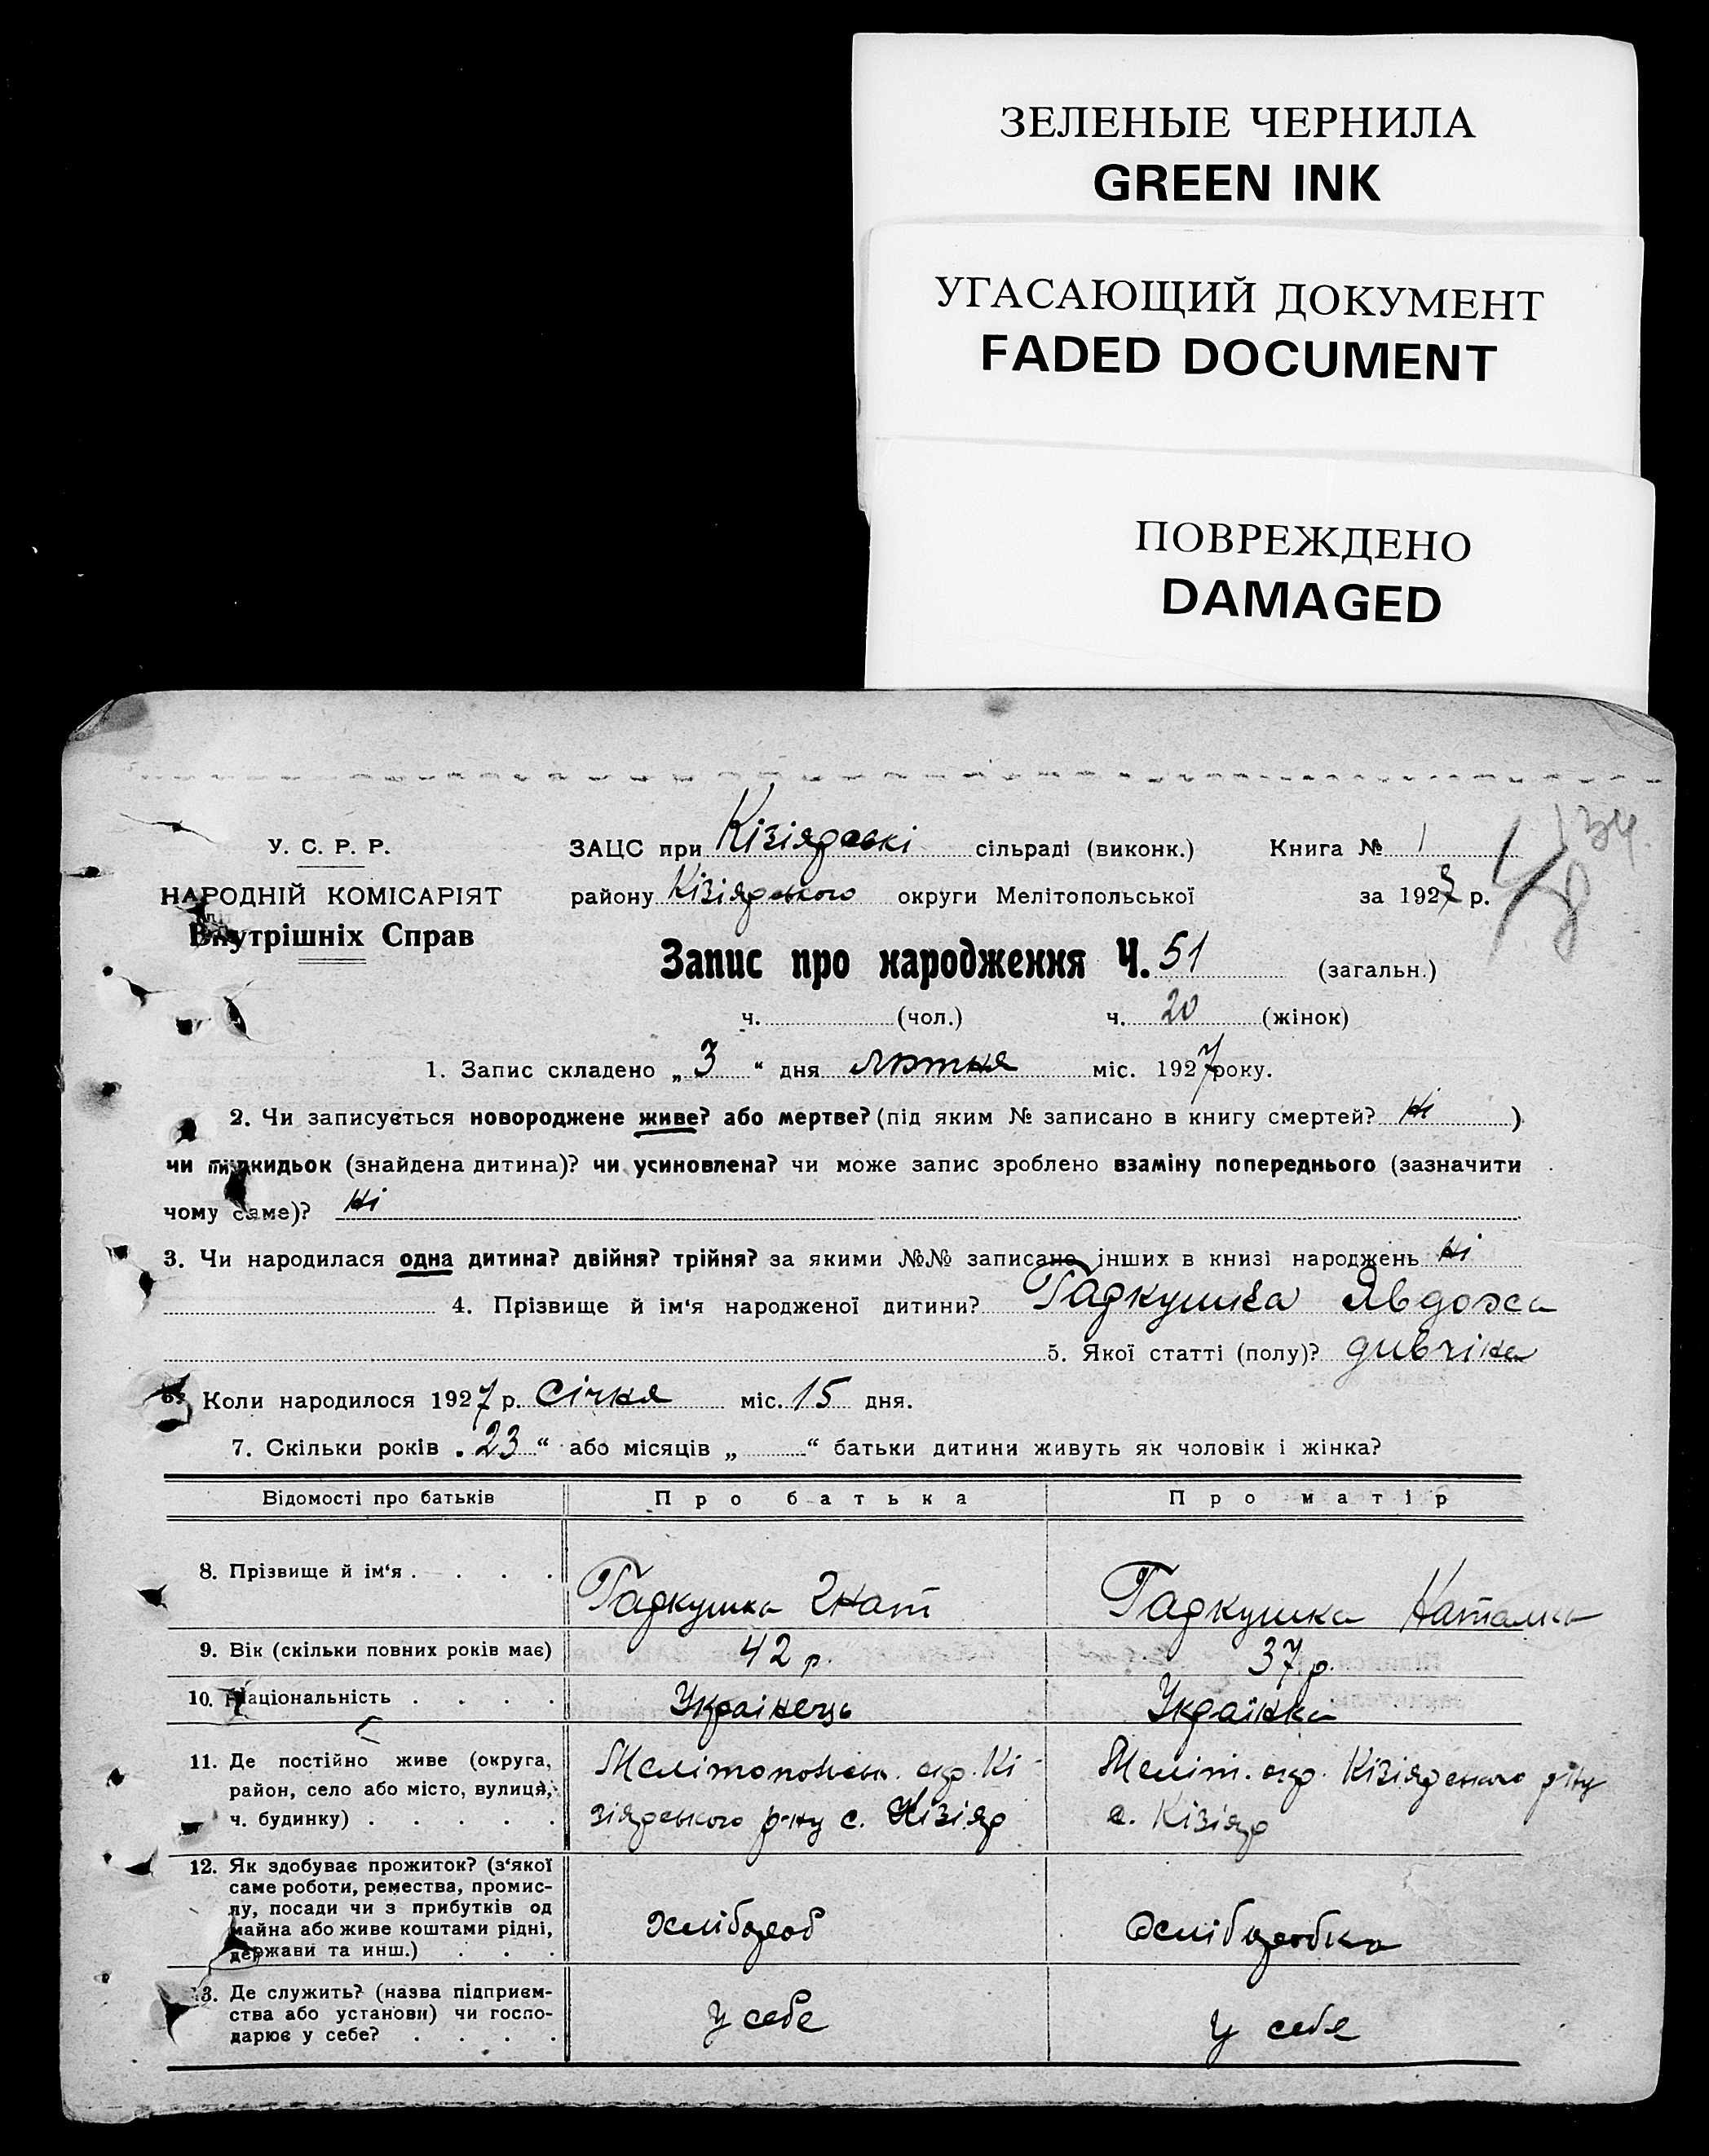 ЗЕЛЕНЫЕ ЧЕРНИЛА
GREEN INK
УГАСАЮЩИЙ ДОКУМЕНТ
FADED DOCUMENT
ПОВРЕЖДЕНО
DAMAGED
134
У. С. Р. Р.
НАРОДНІЙ КОМІСАРІЯТ
Внутрішніх Справ
ЗАЦС при Кізіярські сільраді (виконк.) Книга № 1
району Кізіярського округи Мелітопольської за 1927 р.
Запис про народження Ч. 51 (загальн.)
ч. (чол.) ч. 20 (жінок)
1. Запис складено „ 3 “ дня лютня міс. 1927 року.
2. Чи записується новороджене живе? або мертве? (під яким № записано в книгу смертей? Ні )
чи підкидьок (знайдена дитина)? чи усиновлена? чи може запис зроблено взаміну попереднього (зазначити
чому саме)? Ні
3. Чи народилася одна дитина? двійня? трійня? за якими №№ записано інших в книзі народжень Ні
4. Прізвище й ім‘я народженої дитини? Гадкушка Явдоха
5. Якої статті (полу)? дивчіна
6. Коли народилося 1927 р. Січня міс. 15 дня.
7. Скільки років „ 23 “ або місяців „ “ батьки дитини живуть як чоловік і жінка?
Відомості про батьків Про батька Про матір
8. Прізвище й ім‘я . . . . Гадкушка Гнат Гадкушка Наталка
9. Вік (скільки повних років має) 42 р. 37 р.
10. Національність . . . . Українець Українка
11. Де постійно живе (округа,
район, село або місто, вулиця,
ч. будинку) . . . . .
Мелітопольськ. окр. Кі-
зіярського р-ну с. Кізіяр
Меліт. окр. Кізіярського р-ну
с. Кізіяр
12. Як здобуває прожиток? (з‘якої
саме роботи, ремества, промис-
лу, посади чи з прибутків од
майна або живе коштами рідні,
держави та инш.) . . .
хлібороб
хліборобка
13. Де служить? (назва підприєм-
ства або установи) чи госпо-
дарює у себе? . . . .
У себе
У себе